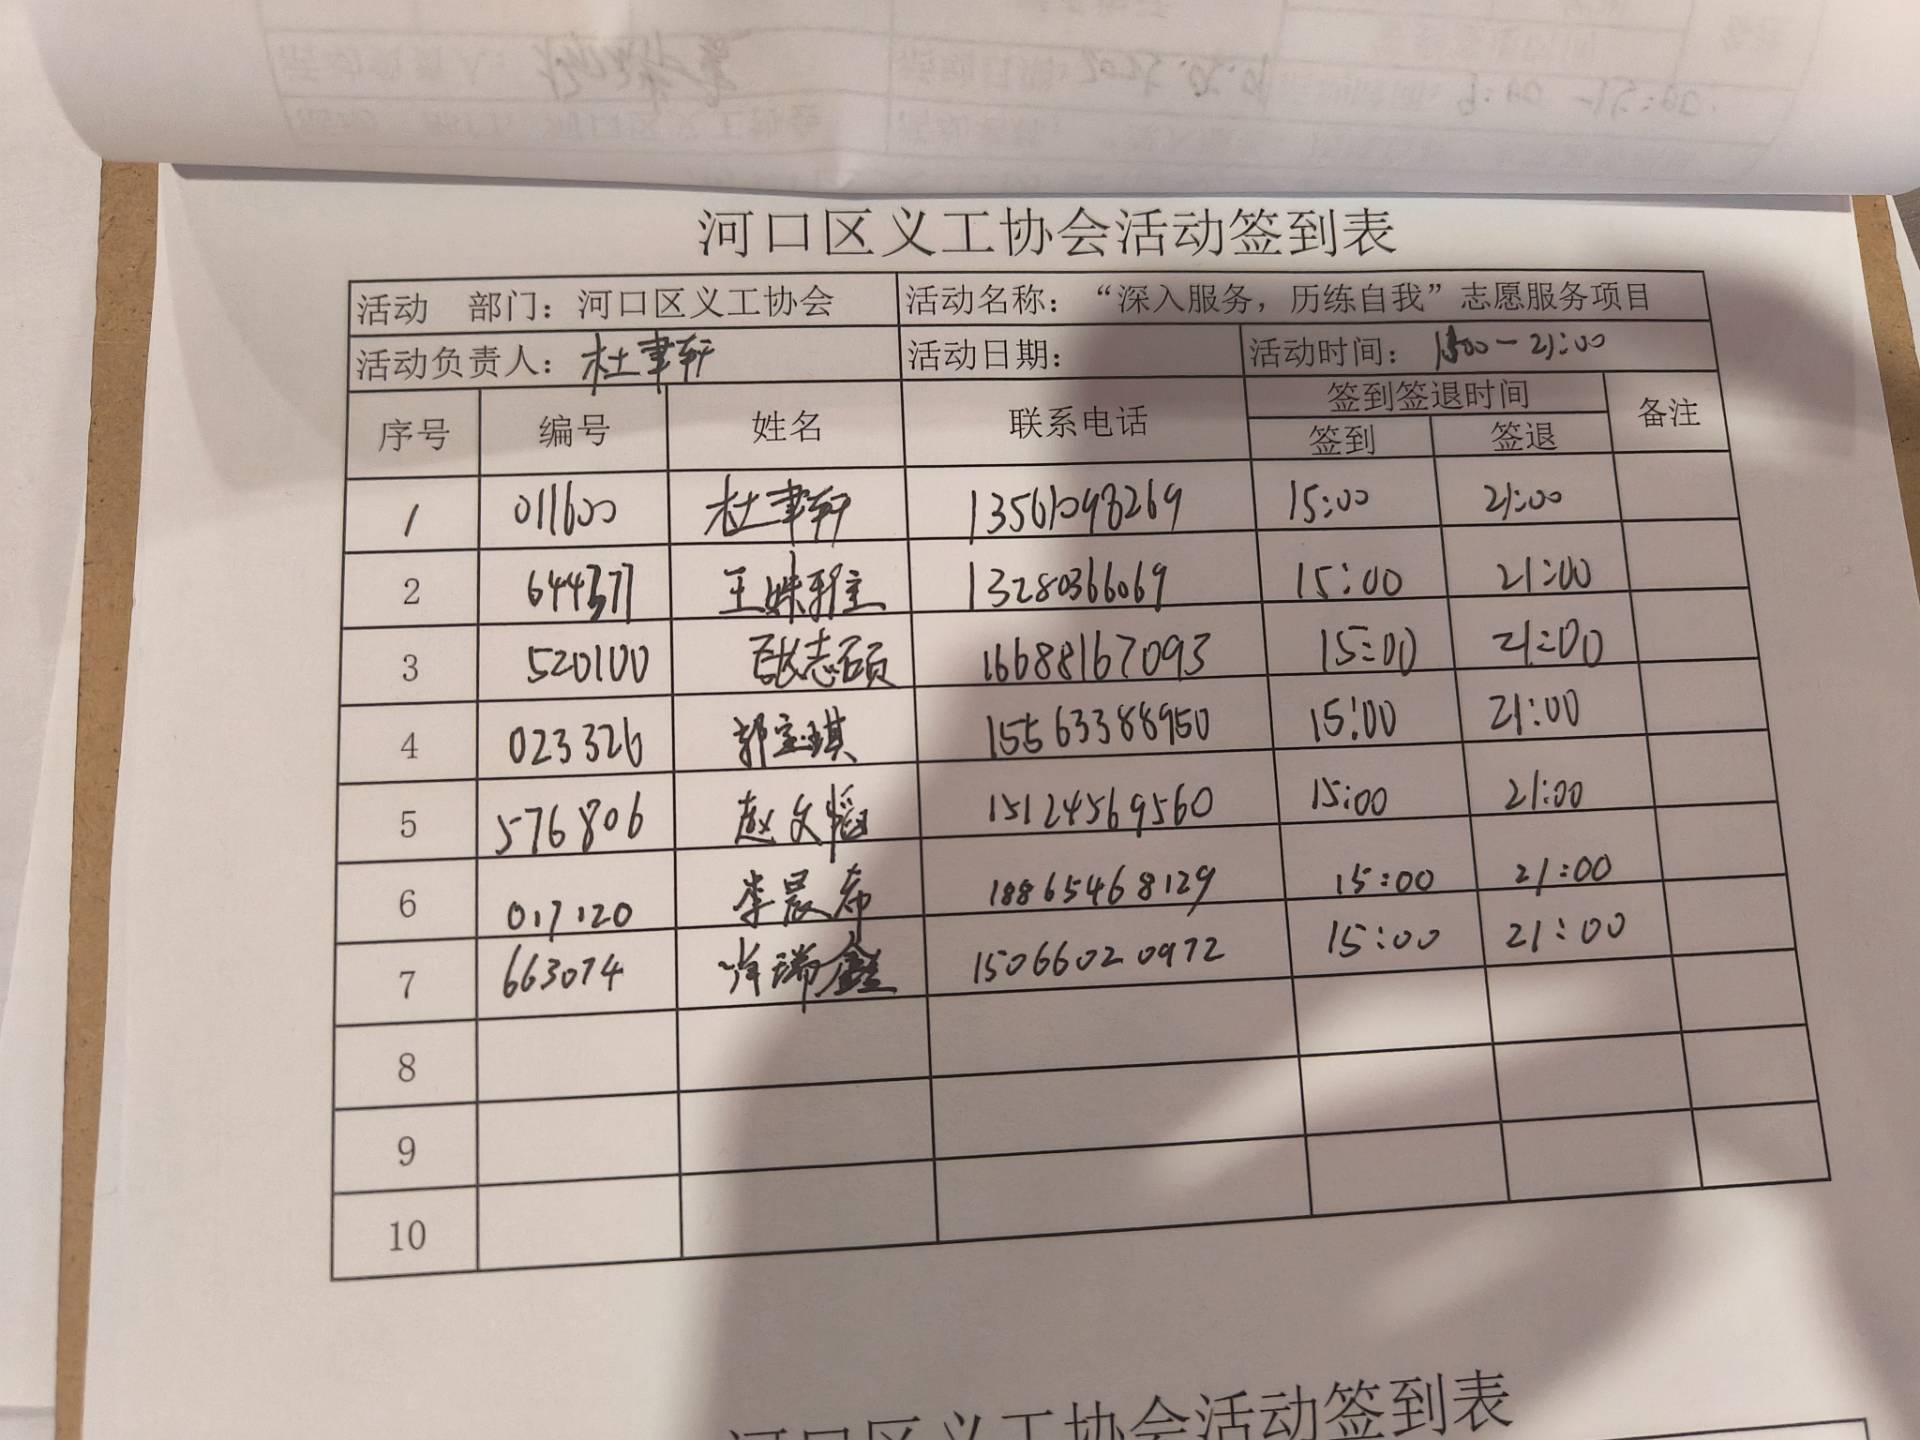 河口区义工协会活动签到表
活动 部门：河口区义工协会 活动名称：“深入服务，历练自我”志愿服务项目
活动负责人：杜聿轩 活动日期： 活动时间：15:00-21:00
序号 编号 姓名 联系电话 签到签退时间 备注
签到 签退
1 011600 杜聿轩 13561098269 15:00 21:00
2 644377 王姝 13280366069 15:00 21:00
3 520100 张志硕 16688167093 15:00 21:00
4 023326 郭宝琪 15563388950 15:00 21:00
5 576806 赵文韬 15124569560 15:00 21:00
6 017120 李晨希 18865468129 15:00 21:00
7 663074 瑞鑫 15066020972 15:00 21:00
8
9
10
河口区义工协会活动签到表